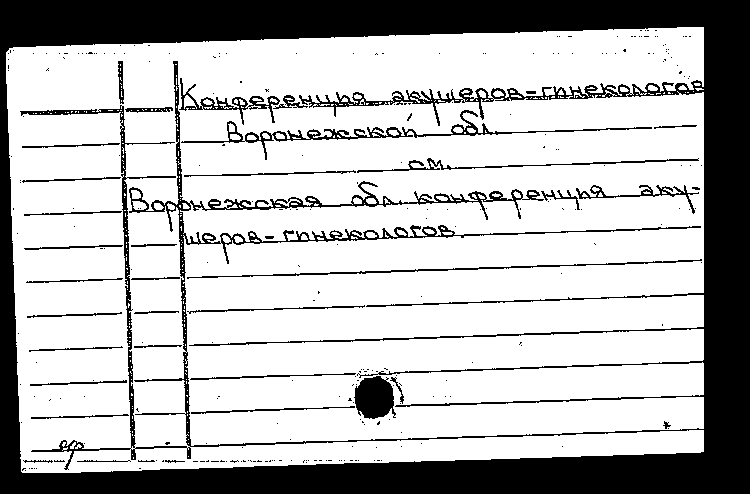 Конференция акушеров-гинекологов
Воронежской обл.
см.
Воронежская обл. конференция аку-
шеров-гинекологов.